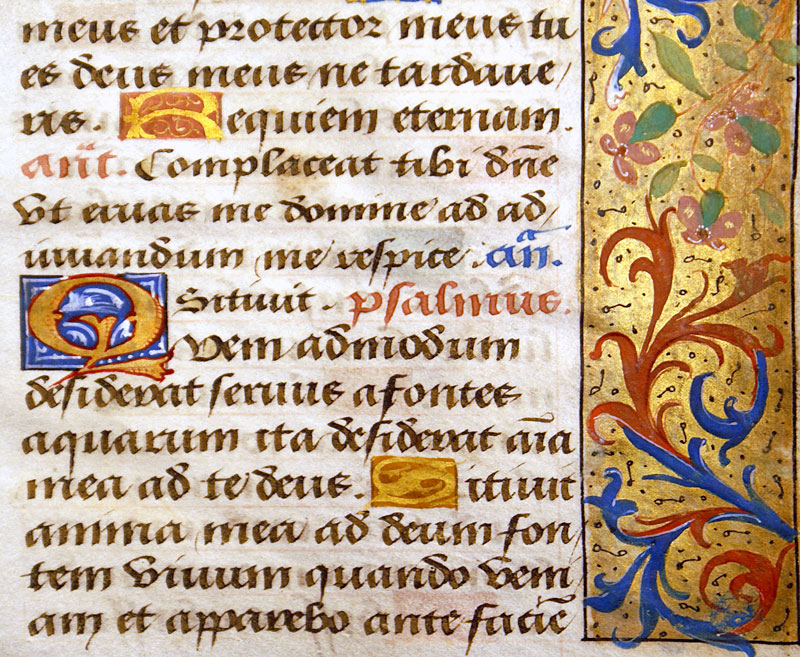 meus et protector meus tu
es deus meus ne tardaue/
ris. Requiem eternam.
añt. Complaceat tibi dñe
vt eruas me domine ad ad/
iuuandum me respice. añ.
Sitiuit. psalmus.
Quem admodum
desiderat seruus a fontes
aquarum ita desiderat aĩa
mea ad te deus. Sitiuit
anima mea ad deum fon/
tem viuum quando veni/
am et apparebo ante faciẽ